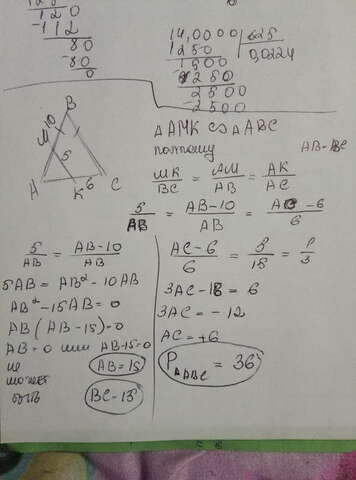 120
-112
80
-80
0
14,0000 | 625
1250 | 0,0224
1500
1250
2500
-2500
B
10
M
5
A
K 6 C
△AMK ∽ △ABC
поэтому AB=BC
MK/BC = AM/AB = AK/AC
5/AB = AB-10/AB = AC-6/6
5/AB = AB-10/AB
5AB = AB² - 10AB
AB² - 15AB = 0
AB(AB-15)=0
AB=0 или AB-15=0
не AB=15
может
быть BC=15
AC-6/6 = 5/15 = 1/3
3AC-18 = 6
3AC = -12
AC = +6
P△ABC = 36